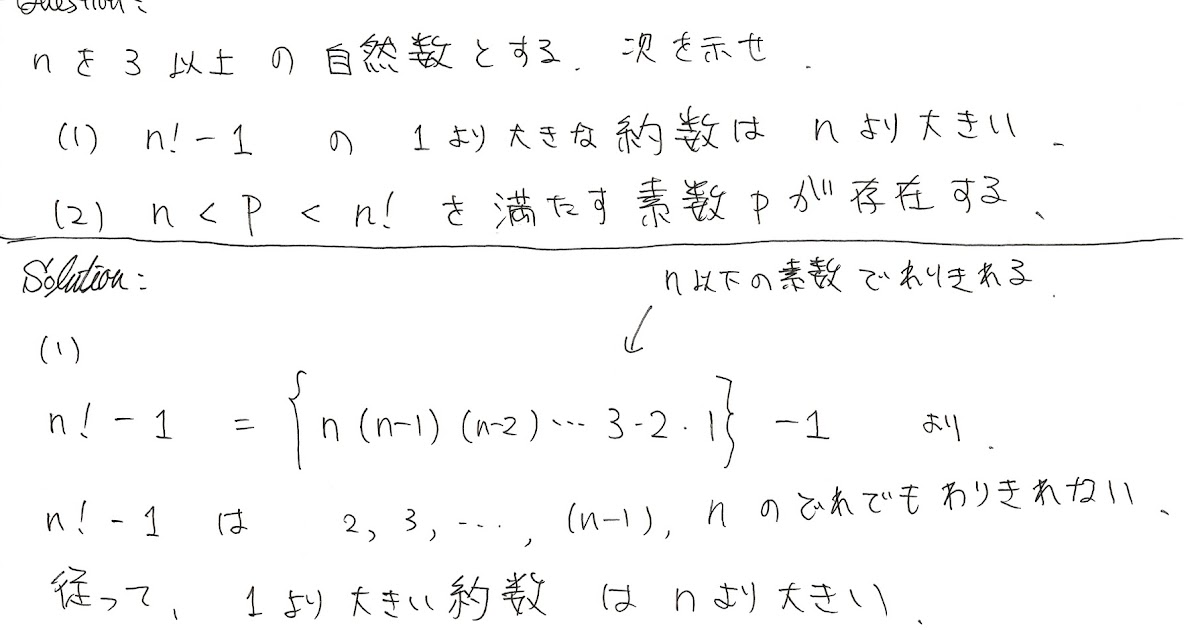 Question:
nを3以上の自然数とする. 次を示せ.
(1) n! - 1 の 1より大きな約数は nより大きい.
(2) n < p < n! を満たす素数pが存在する、
Solution:
n以下の素数でわりきれる.
(1)
n! - 1 = {n (n-1) (n-2) … 3・2・1} - 1 より.
n! - 1 は 2, 3, …, (n-1), n のどれでもわりきれない、
従って、1より大きい約数 は nより大きい.